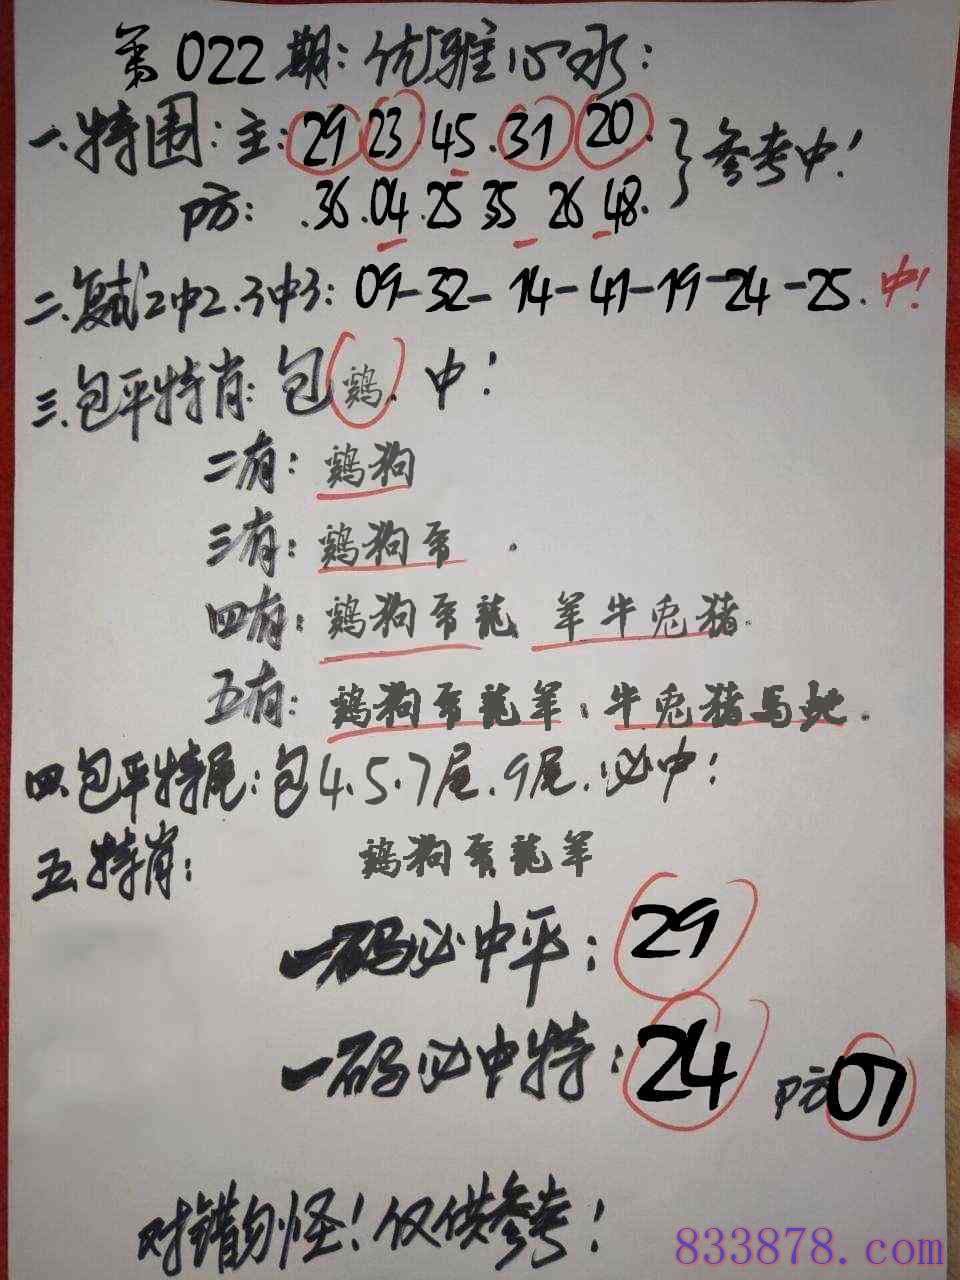 第022期:优雅心水:
一.特围:主:29 23.45.31 20. }参考中!
防:.36.04.25 35 26 48.
二.复试2中2.3中3:09-32-14-41-19-24-25.中!
三.包平特肖:包鸡.中!
二有:鸡狗
三有:鸡狗
四有:鸡狗 龍 羊牛兎猪.
五有:鸡狗 龍羊.牛兎猪馬蛇.
四.包平特尾:包4.5.7尾.9尾.必中!
五.特肖:鸡狗 龍羊
一码必中平:29
一码必中特:24 防07
对错勿怪!仅供参考!
833878.com